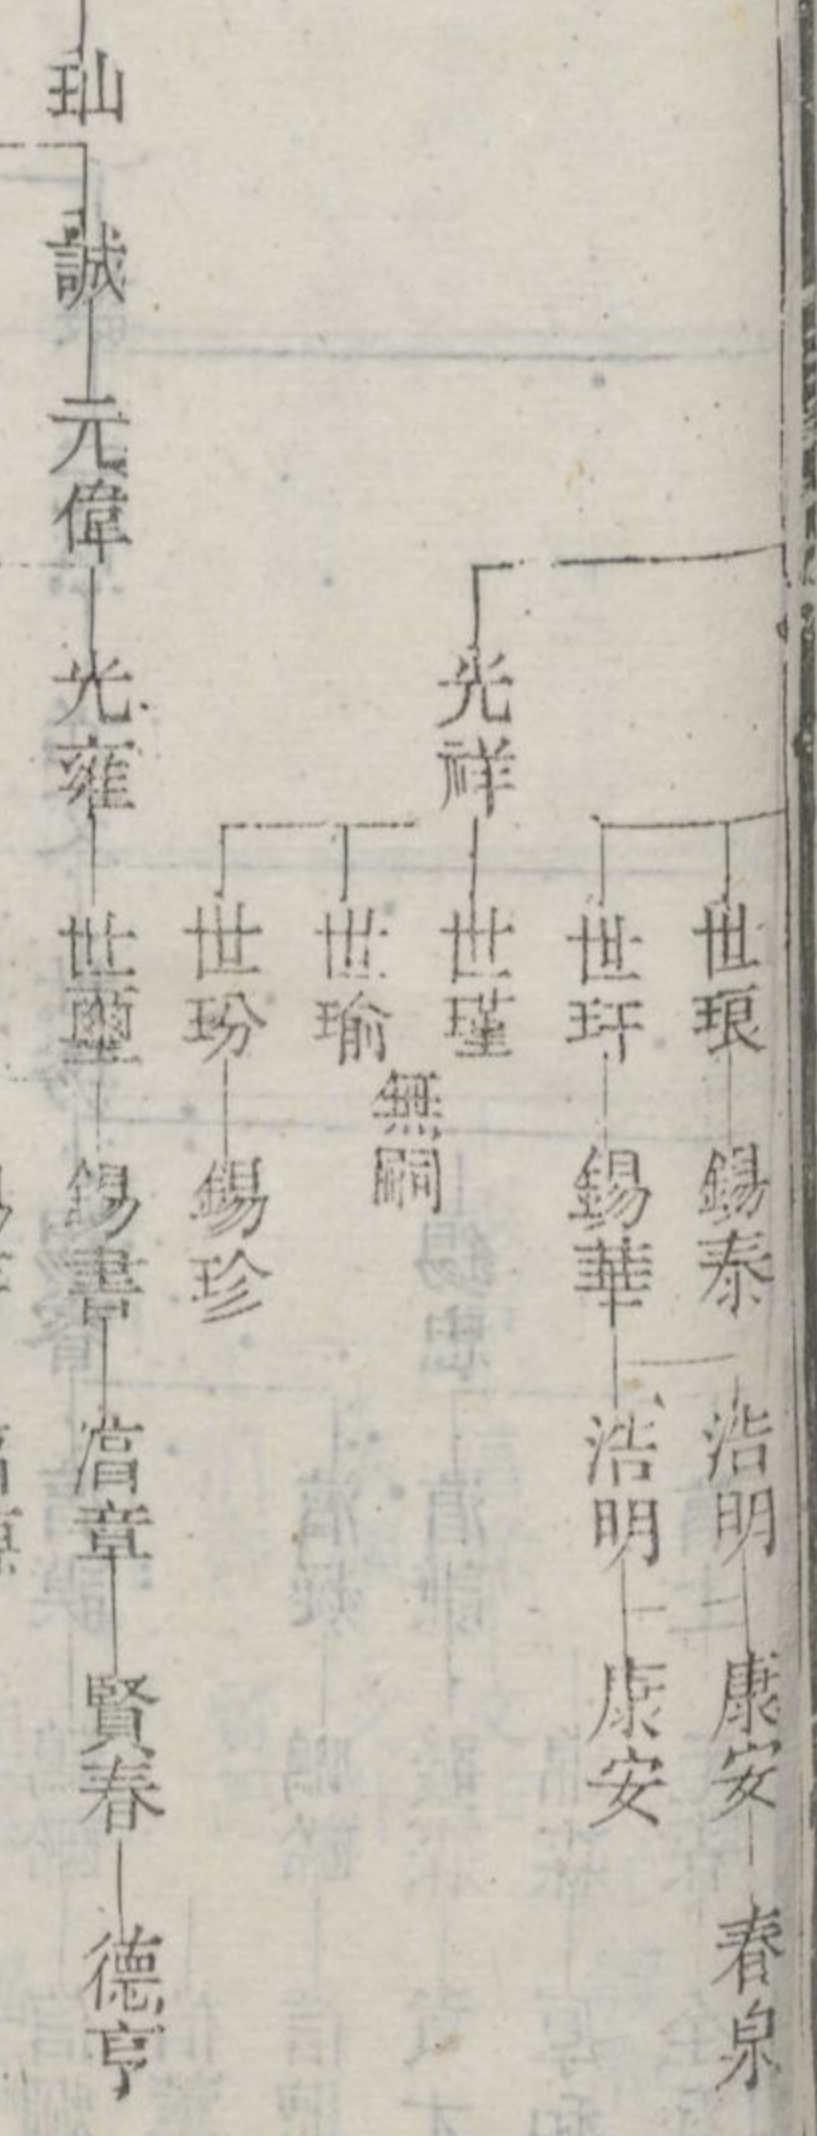 世琅
錫泰
浩明
康安
春泉
世玕
錫華
浩明
康安
光祥
世瑾
無嗣
世瑜
世玢
錫珍
誠
元偉
光雍
世璽
錫書
章
賢春
德亨